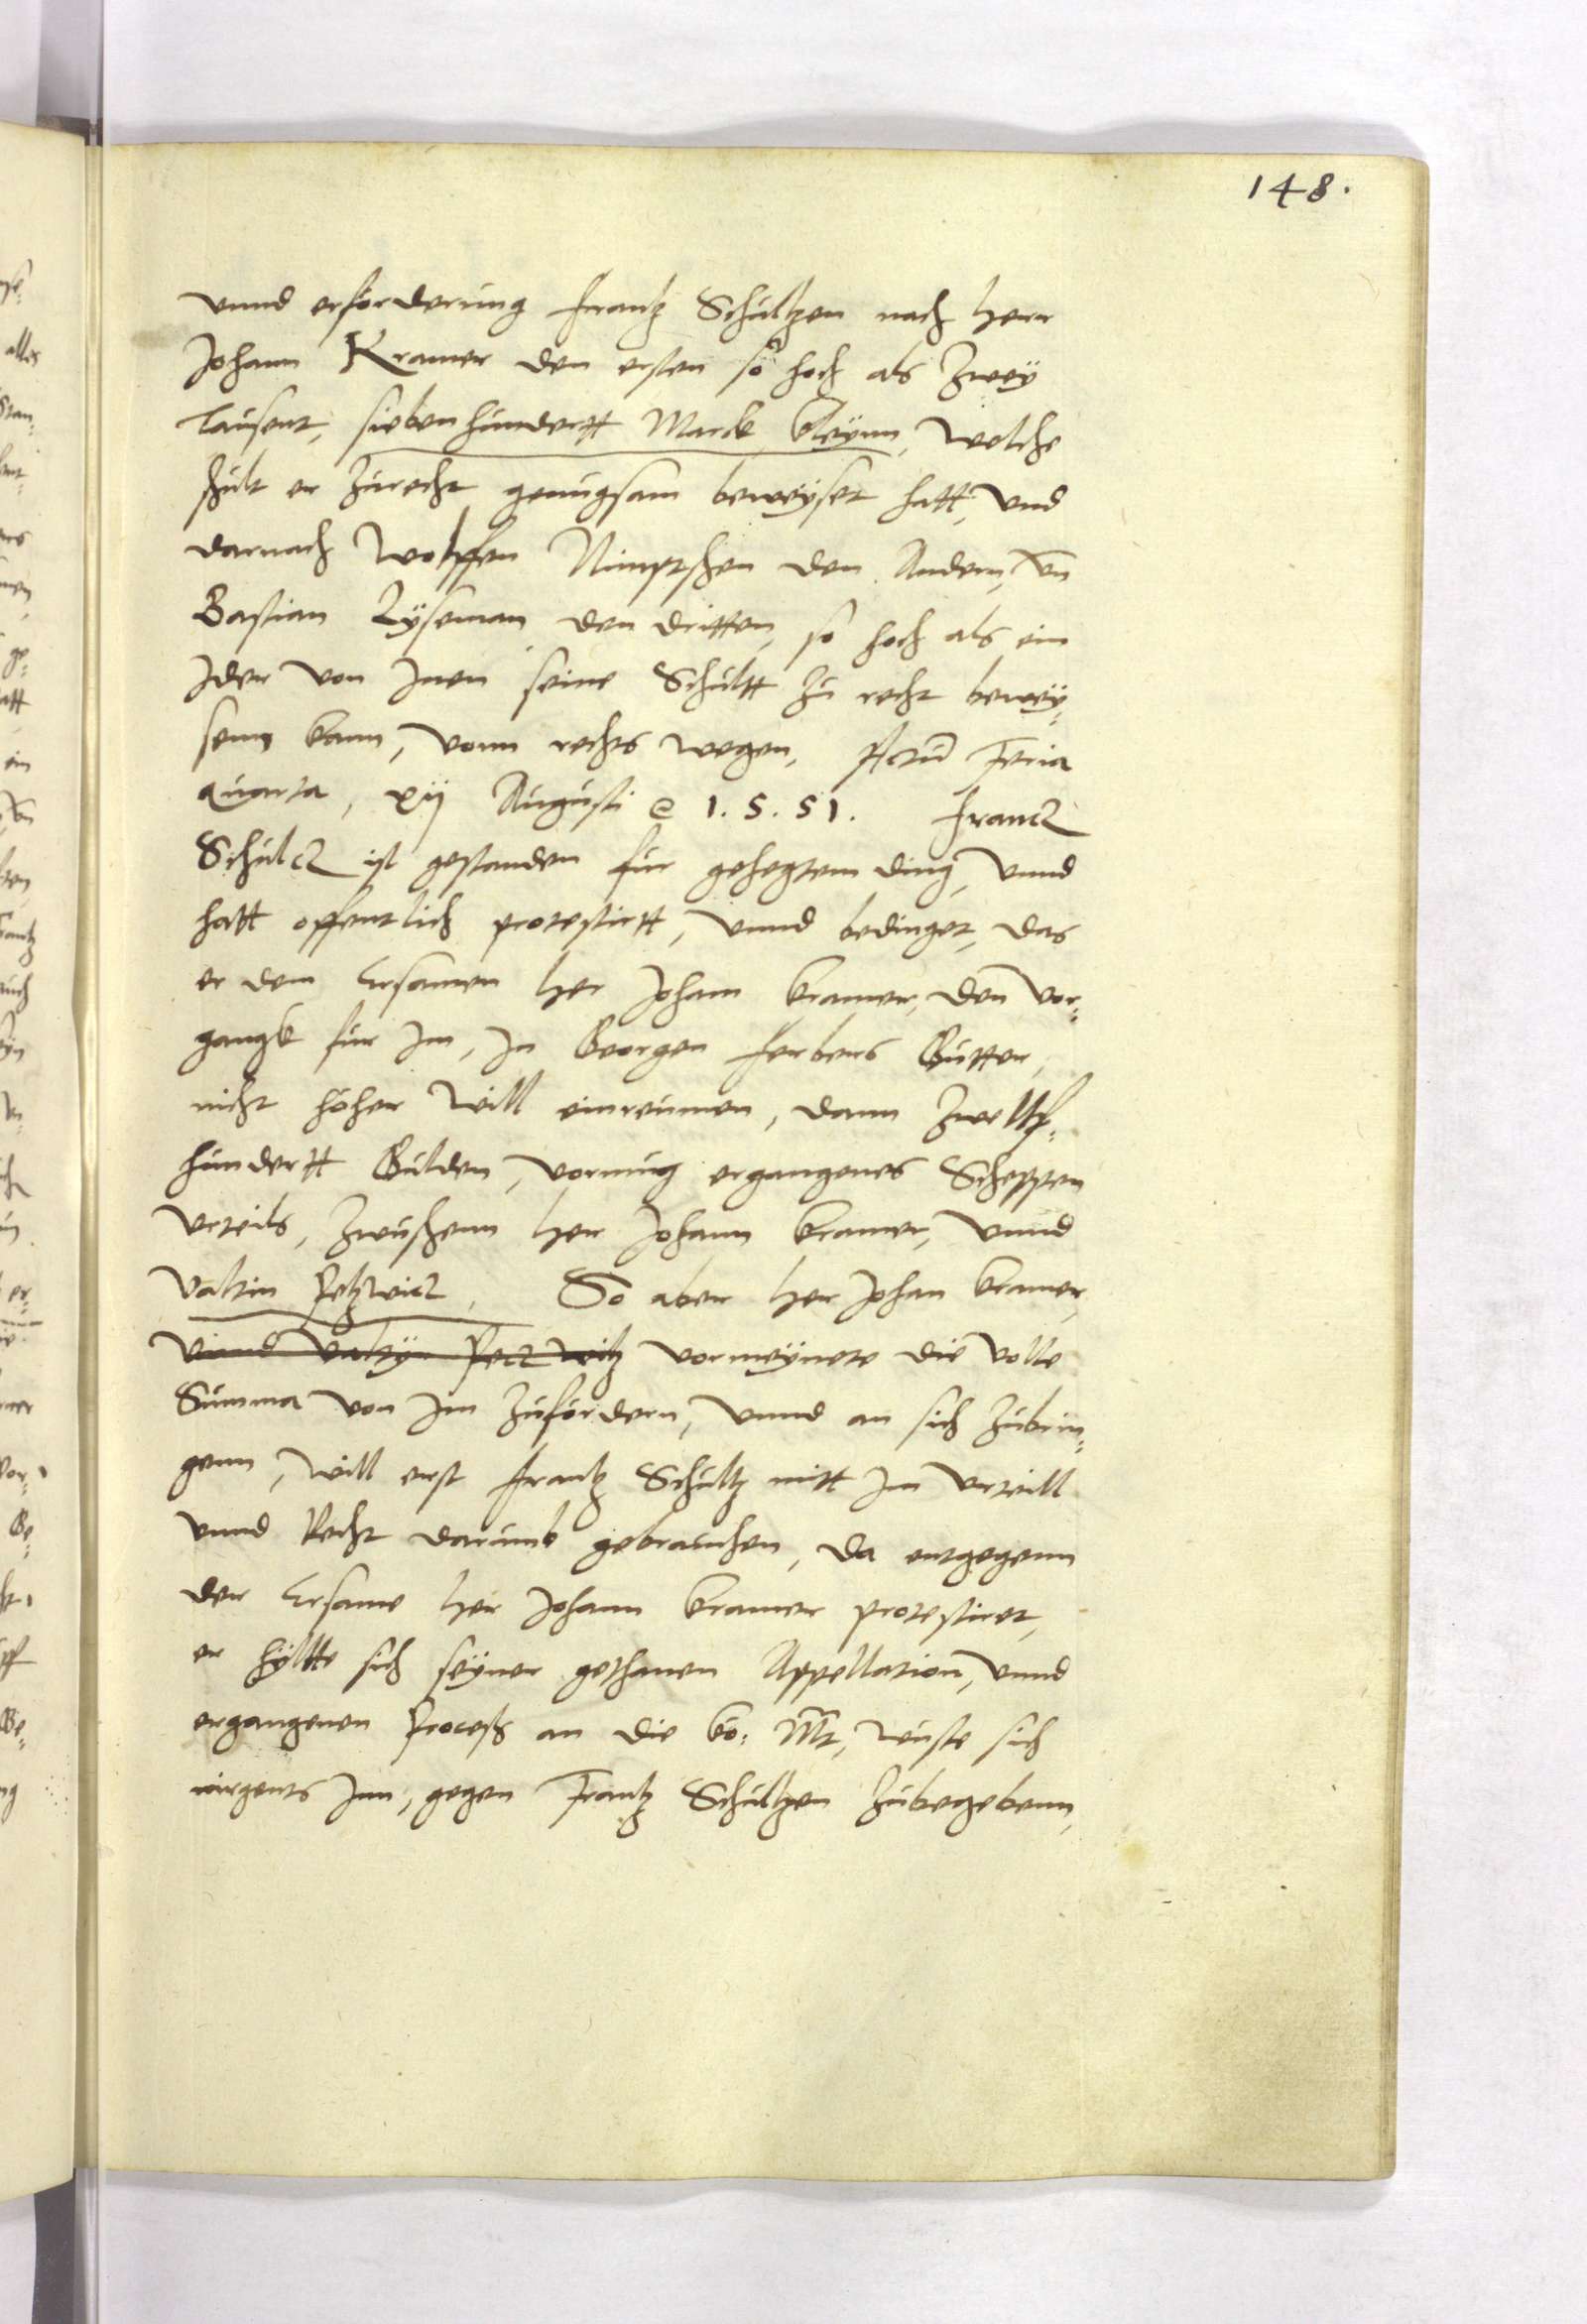 148.
vnnd erforderung Frantz Schultzen nach Herr
Johann Kramer den ersten so hoch als Zwey
Tausent, siebenhundertt Marck kleynn, welche
schult er Zurecht genugsam beweyset hatt, vnd
darnach Wolffen Nimptschen den Andern, vn̄
Bastian Lyseman den dritten, so hoch als ein
Jder von Jnen seine Schultt zu recht bewey¬
senn kann, vonn rechts wegen, Actū Feria
quarta, xij Augusti @ 1.5.51. Francz
Schulcz ist gestanden fur gehegtem ding, vnnd
hatt offentlich protestirtt, vnnd bedinget, das
er dem Ersamen Her Johann Kramer, den vor¬
gangk fur Jm, Jn Georgen Ferbers Gutter,
nicht hoher will einreumen, dann Zwelff¬
hundertt Gulden, vormug ergangenes Scheppen
vrteils, Zwuschenn Her Johann Kramer, vnnd
Valtin Petzwicz, So aber Her Johan Kramer,
vnnd Valtyn Peczwitz vormeynete die volle
Summa von Jm Zufordern, vnnd an sich Zubrin¬
genn, will erst Frantz Schultz mitt Jm vrteill
vnnd Recht darumb gebrauchen, da entgegenn
der Ersame Her Johann Kramer protestiret,
er hyltte sich seyner gethanen Appellation, vnnd
ergangenen Proceß an die ko: Mt, wuste sich
nirgents Jnn, gegen Frantz Schultzen Zubegebenn,